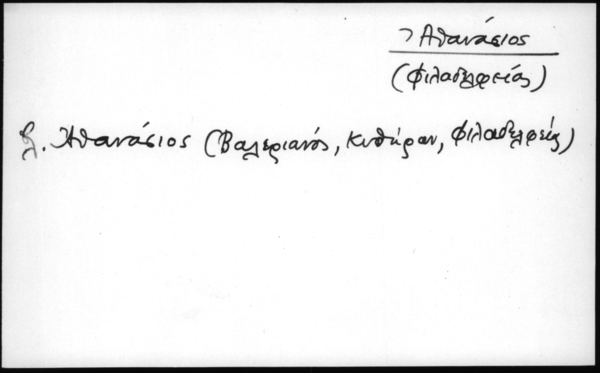 Ἀθανάσιος
(Φιλαδελφείας)
βλ. Ἀθανάσιος (Βαλεριανός, Κυθήρων, Φιλαδελφείας)